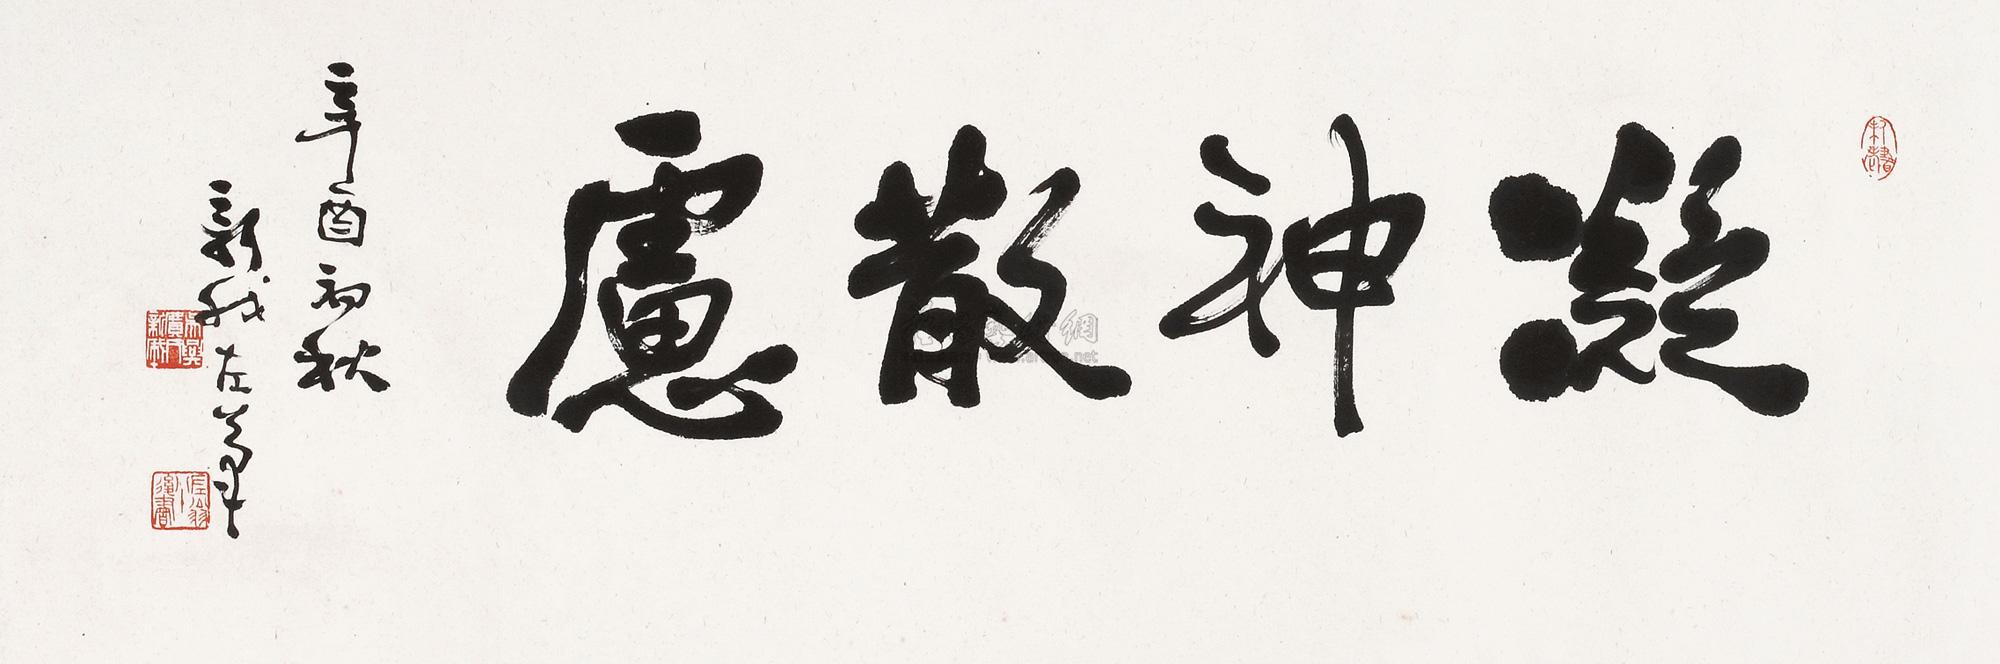 凝神散慮
辛酉初秋
新我左筆